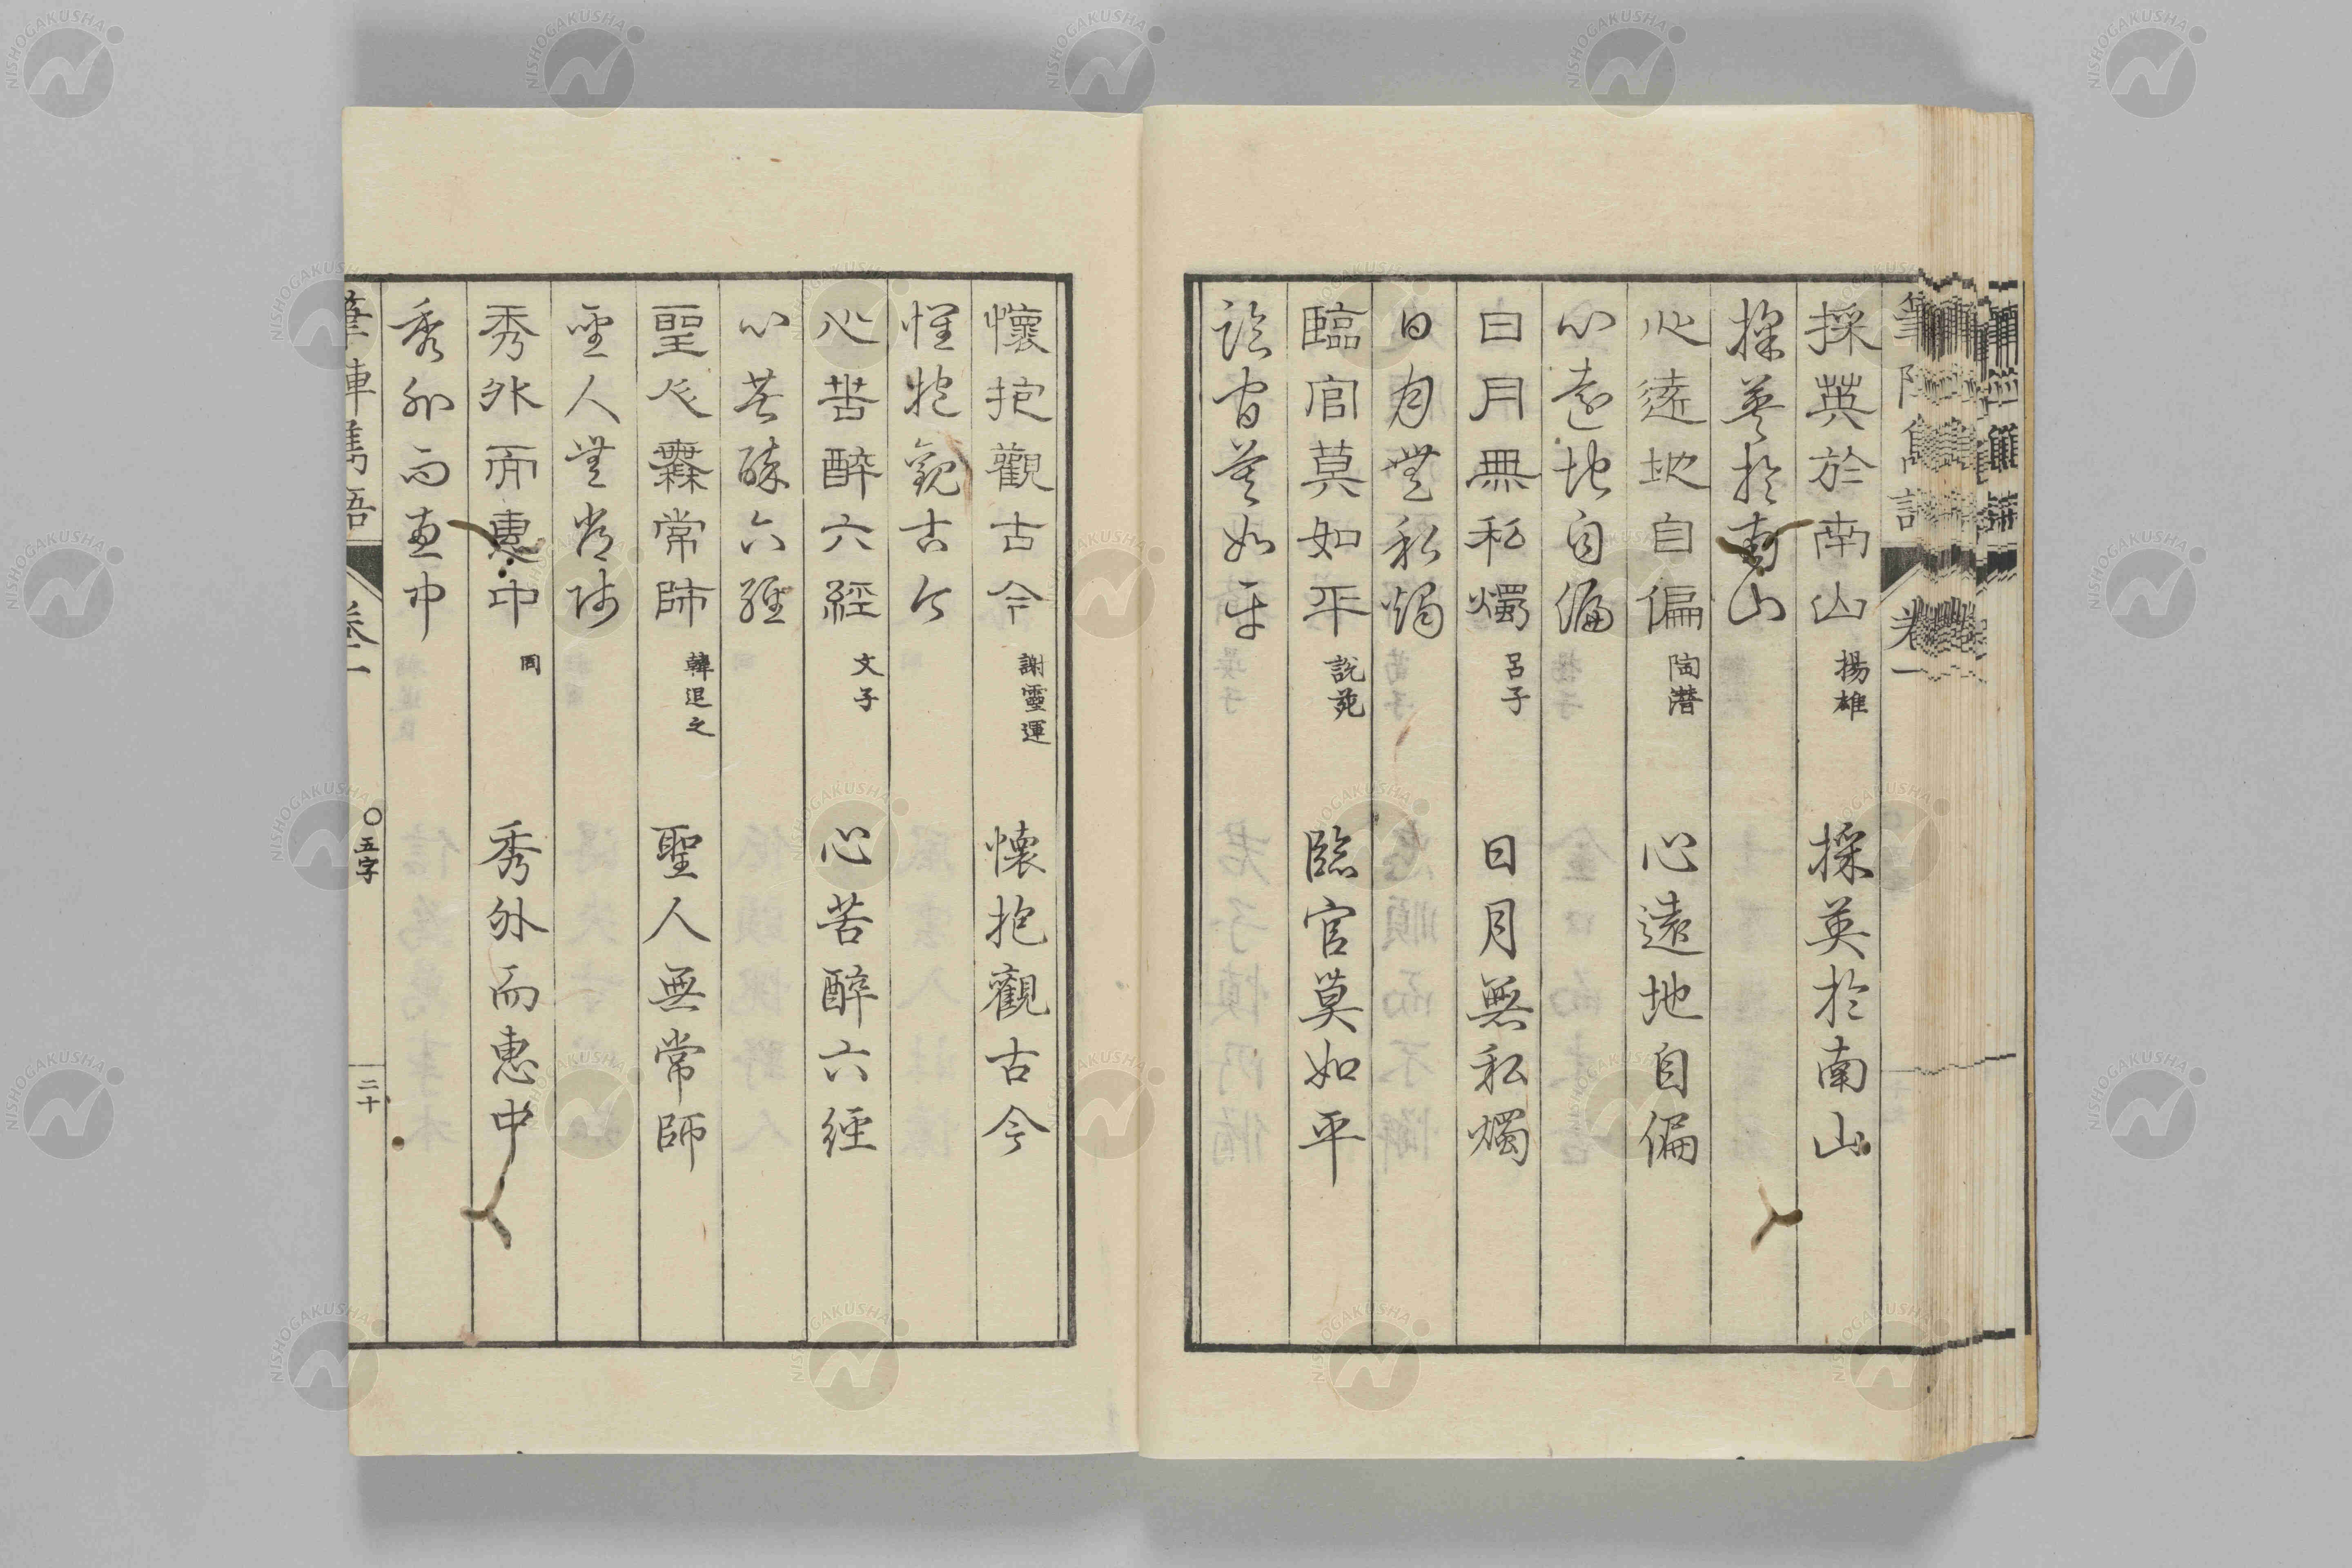 採英於南山 揚雄 採英於南山
採英於南山
心遠地自偏 陶潜 心遠地自偏
心遠地自偏
日月無私燭 呂子 日月無私燭
日月無私燭
臨官莫如平 説苑 臨官莫如平
臨官莫如平
懷抱觀古今 謝靈運 懐抱觀古今
懷抱觀古今
心苦醉六經 文子 心苦醉六經
心苦醉六經
聖人無常師 韓退之 聖人無常師
聖人無常師
秀外而惠中 同 秀外而惠中
秀外而惠中
筆陣雋語 卷一 〇五字 二十
NISHOGAKUSHA